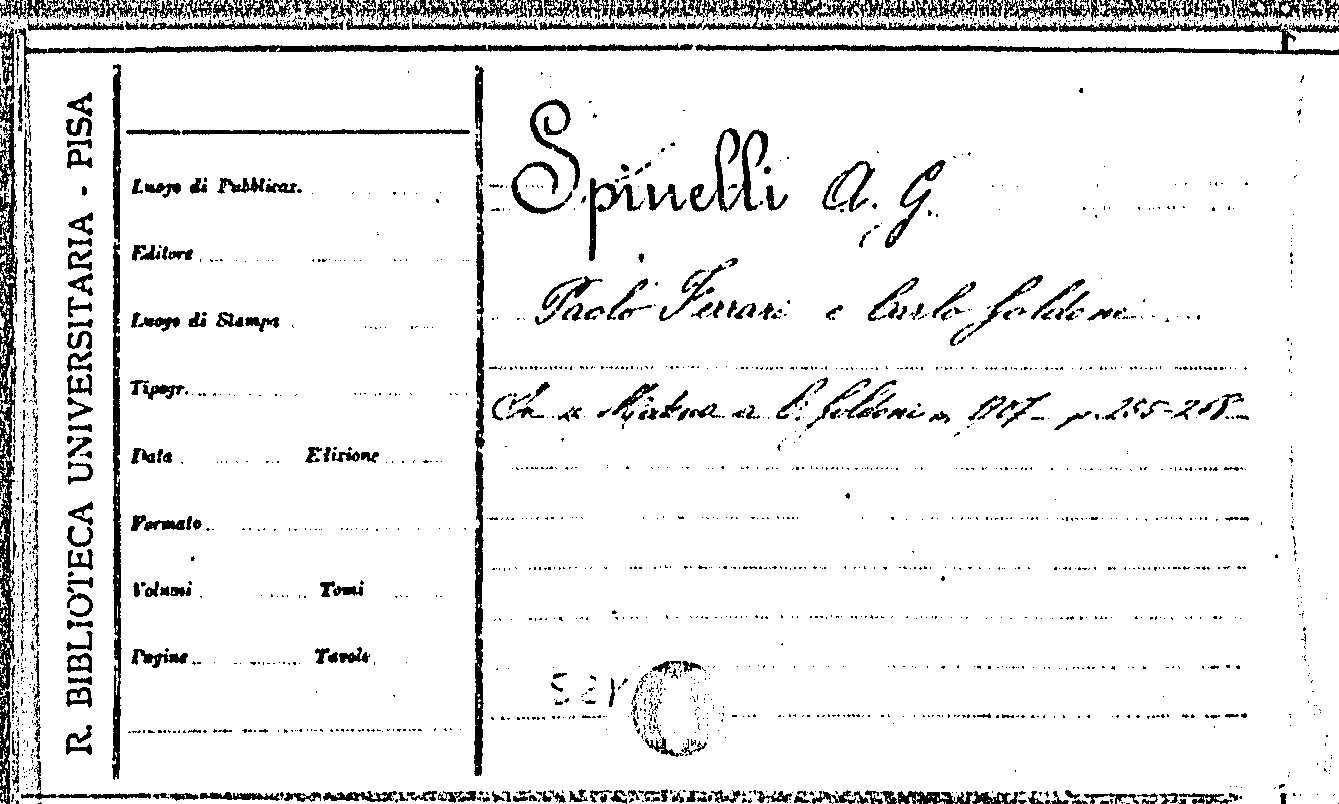 R. BIBLIOTECA UNIVERSITARIA - PISA
Luogo di Pubblicaz.
Editore
Luogo di Stampa
Tipogr.
Data Edizione
Formato
Volumi Tomi
Pagine Tavole
Spinelli A. G.
Paolo Ferrari e Carlo Goldoni
In Modena a C. Goldoni 907 - p. 255-258